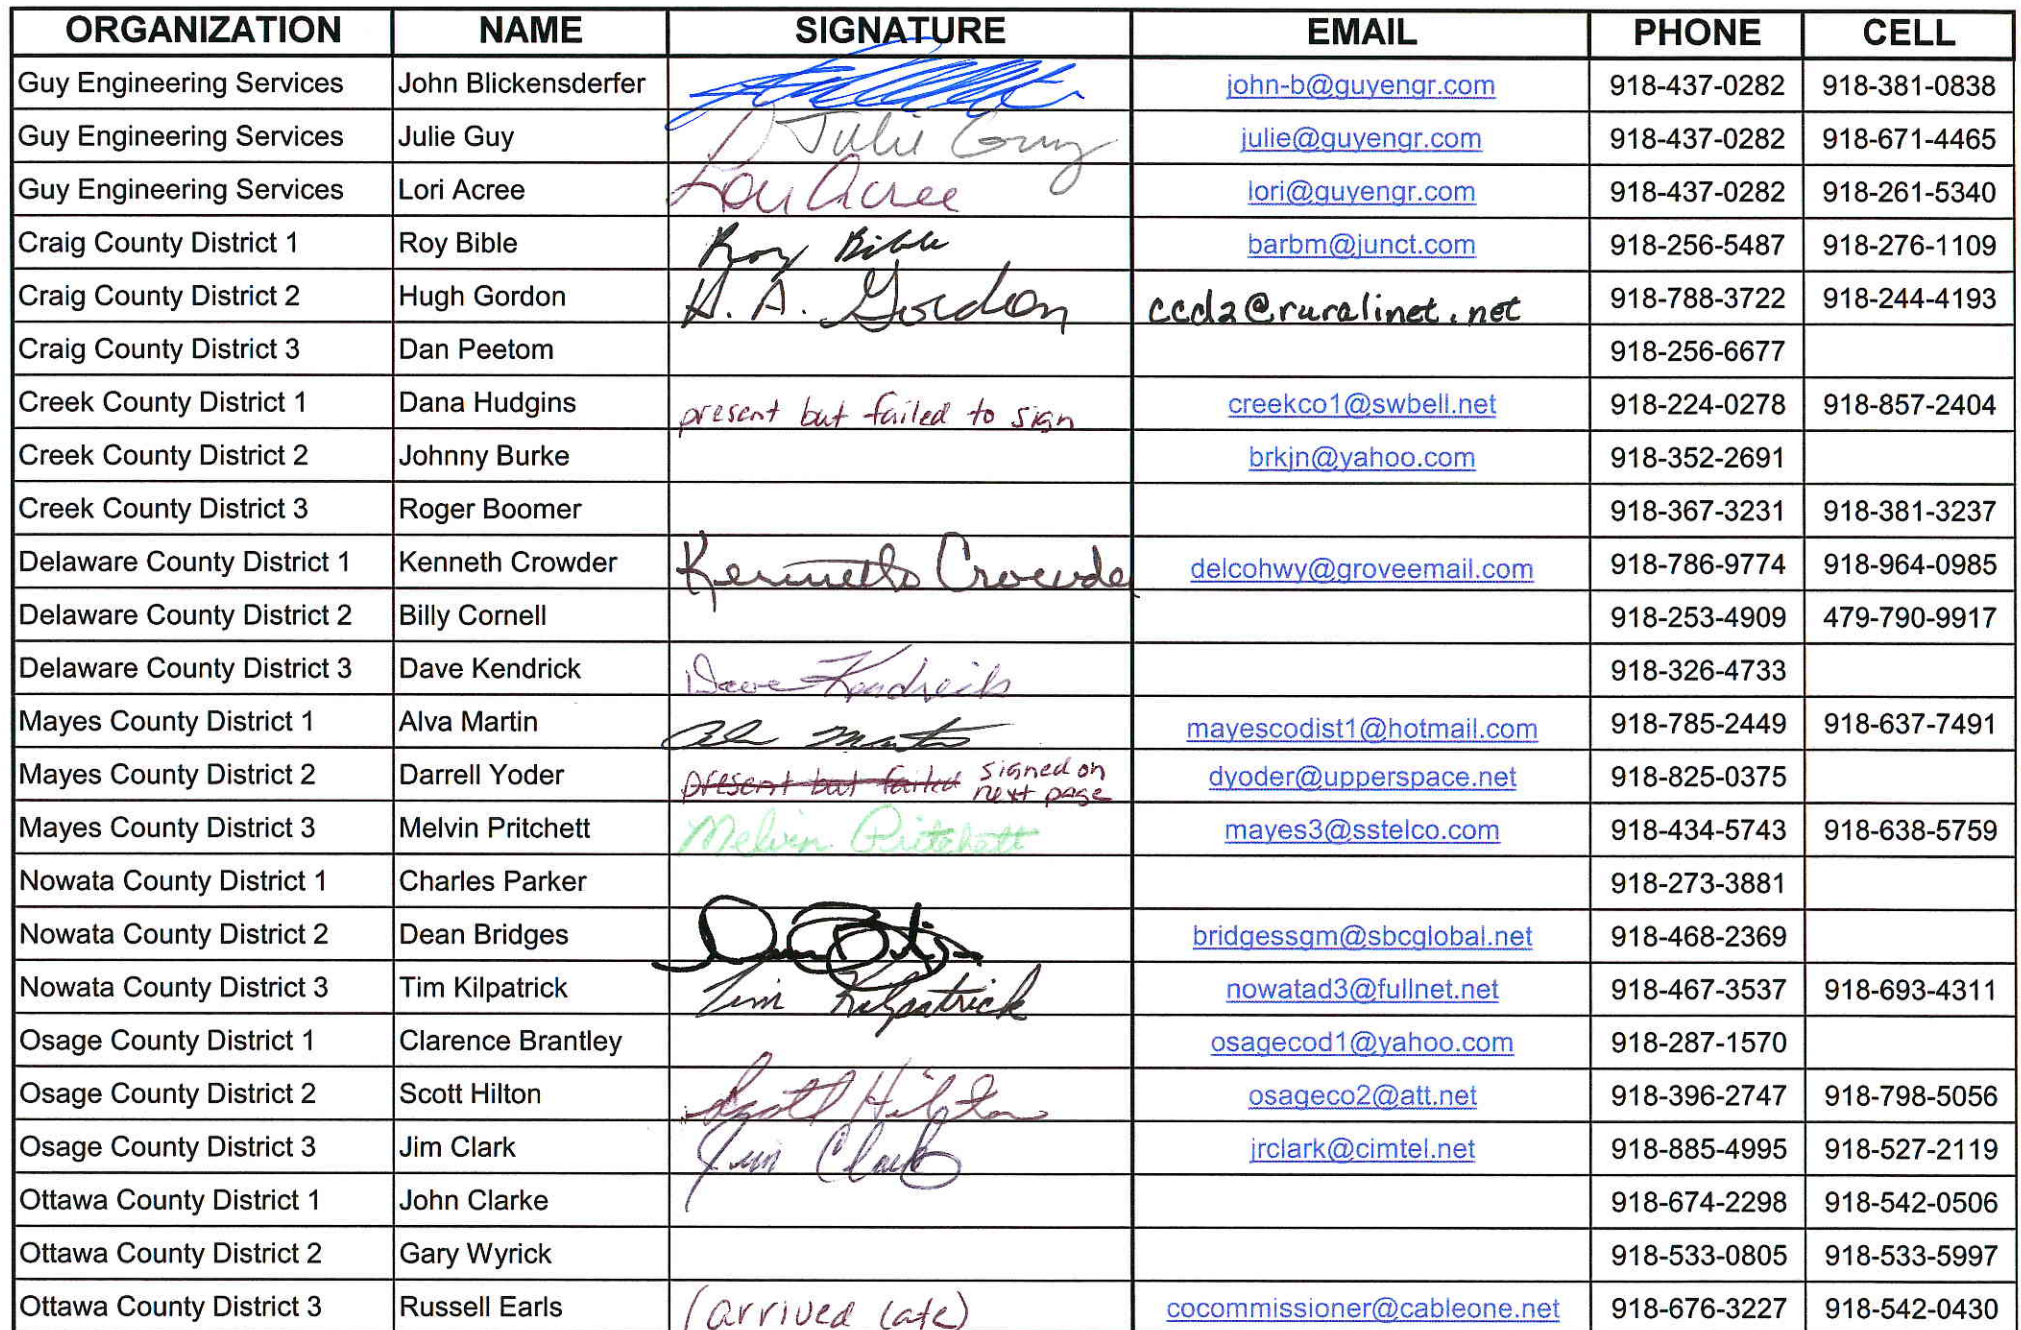 ORGANIZATION NAME SIGNATURE EMAIL PHONE CELL
Guy Engineering Services John Blickensderfer john-b@guyengr.com 918-437-0282 918-381-0838
Guy Engineering Services Julie Guy Julie Guy julie@guyengr.com 918-437-0282 918-671-4465
Guy Engineering Services Lori Acree Lori Acree lori@guyengr.com 918-437-0282 918-261-5340
Craig County District 1 Roy Bible Roy Bible barbm@junct.com 918-256-5487 918-276-1109
Craig County District 2 Hugh Gordon H. A. Gordon ccd2@ruralinet.net 918-788-3722 918-244-4193
Craig County District 3 Dan Peetom 918-256-6677
Creek County District 1 Dana Hudgins present but failed to sign creekco1@swbell.net 918-224-0278 918-857-2404
Creek County District 2 Johnny Burke brkjn@yahoo.com 918-352-2691
Creek County District 3 Roger Boomer 918-367-3231 918-381-3237
Delaware County District 1 Kenneth Crowder Kenneth Crowder delcohwy@groveemail.com 918-786-9774 918-964-0985
Delaware County District 2 Billy Cornell 918-253-4909 479-790-9917
Delaware County District 3 Dave Kendrick Dave Kendrick 918-326-4733
Mayes County District 1 Alva Martin Alva Martin mayescodist1@hotmail.com 918-785-2449 918-637-7491
Mayes County District 2 Darrell Yoder present but failed signed on next page dyoder@upperspace.net 918-825-0375
Mayes County District 3 Melvin Pritchett Melvin Pritchett mayes3@sstelco.com 918-434-5743 918-638-5759
Nowata County District 1 Charles Parker 918-273-3881
Nowata County District 2 Dean Bridges bridgessgm@sbcglobal.net 918-468-2369
Nowata County District 3 Tim Kilpatrick Tim Kilpatrick nowatad3@fullnet.net 918-467-3537 918-693-4311
Osage County District 1 Clarence Brantley osagecod1@yahoo.com 918-287-1570
Osage County District 2 Scott Hilton Scott Hilton osageco2@att.net 918-396-2747 918-798-5056
Osage County District 3 Jim Clark Jim Clark jrclark@cimtel.net 918-885-4995 918-527-2119
Ottawa County District 1 John Clarke 918-674-2298 918-542-0506
Ottawa County District 2 Gary Wyrick 918-533-0805 918-533-5997
Ottawa County District 3 Russell Earls (arrived late) cocommissioner@cableone.net 918-676-3227 918-542-0430